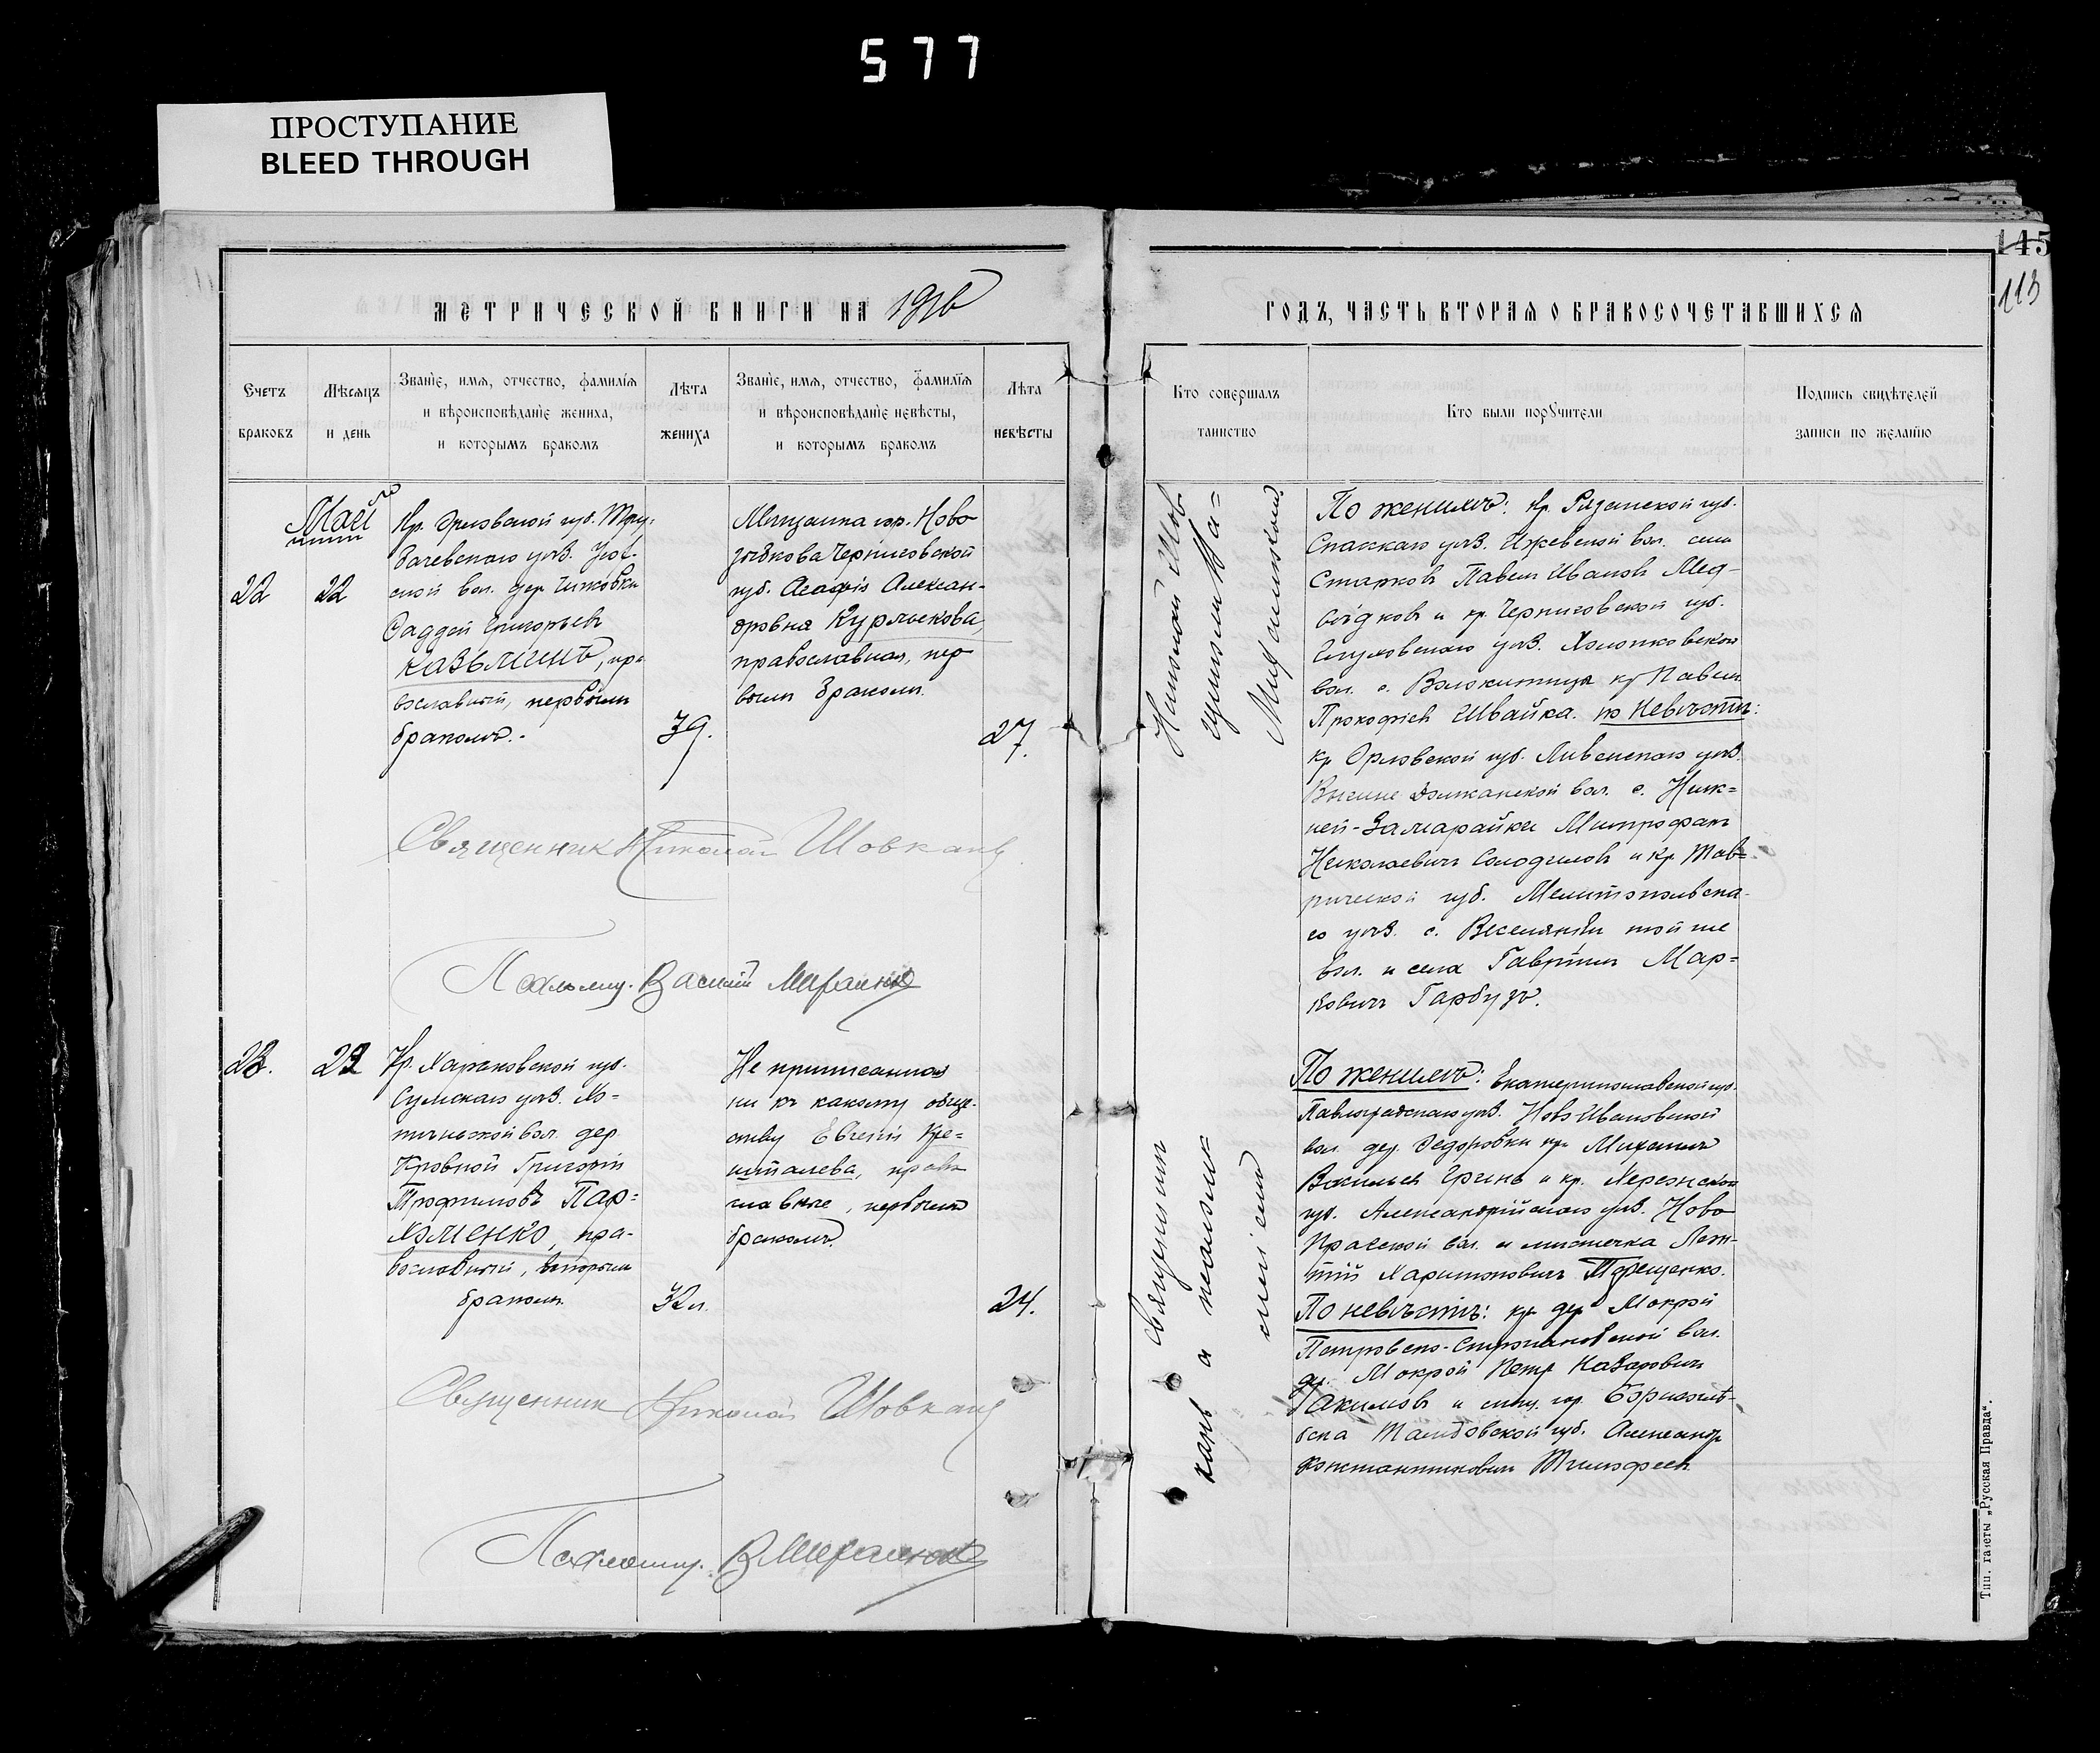 577
ПРОСТУПАНИЕ
BLEED THROUGH
145
113
МЕТРИЧЕСКОЙ КНИГИ НА 1916
ГОДЪ, ЧАСТЬ ВТОРАЯ О БРАКОСОЧЕТАВШИХСЯ
Счетъ
браковъ
Мѣсяцъ
и день
Званіе, имя, отчество, фамилія
и вѣроисповѣданіе жениха,
и которымъ бракомъ
Лѣта
жениха
Званіе, имя, отчество, фамилія
и вѣроисповѣданіе невѣсты,
и которымъ бракомъ
Лѣта
невѣсты
Кто совершалъ
таинство
Кто были поручители
Подпись свидѣтелей
записи по желанію
Май
22
22
Кр. Орловской губ. Тру-
бчевскаго уѣз.
вол. дер.
Фаддей Григорьевъ
Казьминъ, пра
вославный, первымъ
бракомъ.
39.
Мѣщанка гор. Ново
зыбкова Черниговской
губ. Агафія Алексан-
дровна Курлыкова,
православная, пер
вымъ бракомъ.
27.
Священникъ Николай Шовкань
Псаломщ. Василій
Николай Шов
По женихѣ: Кр. Рязанской губ.
Спасскаго уѣз. Ижевской вол. села
Старковъ Павелъ Ивановъ Мед-
вѣдковъ и кр. Черниговской губ.
Глуховскаго уѣз. Холопковской
вол. с. Волокитина кр Павелъ
Прокофіевъ Швайка. по невѣстѣ:
кр Орловской губ. Ливенскаго уѣз.
Должанской вол. с. Ниж=
ней-Замарайки Митрофанъ
Николаевичъ Солодиловъ и кр. Тав=
рической губ. Мелитопольска
го уѣз. с. той же
вол. и села Гавріилъ Мар=
ковичъ Гарбузъ.
23.
22
Кр. Харьковской губ.
Сумскаго уѣз. Хо=
тѣньской вол. дер.
Кровной Григорій
Трофимовъ Пар=
хоменко, пра-
вославный, вторымъ
бракомъ.
32 л.
Не приписанная
ни къ какому обще-
ству Евгенія
право
славные, первымъ
бракомъ.
24.
Священникъ Николай Шовкань
Псаломщ. В
Священникъ
кань и псаломщ
По женихѣ: Екатеринославской губ.
Павлоградскаго уѣз. Ново Ивановской
вол. дер. Федоровки кр. Михаилъ
Васильевъ Гринь и кр. Херсонской
губ. Александрійскаго уѣз. Ново
Пражской вол. и мѣстечка Леон-
тій Харитоновичъ Терещенко.
По невѣстѣ: кр. дер. Мокрой
Петровско-Строгановской вол.
дер. Мокрой Петръ Назаровичъ
Акимовъ и мѣщ. гор. Борисоглѣ-
бска Тамбовской губ. Александръ
Константиновичъ Тимофеевъ
Тип. газеты „Русская Правда“.